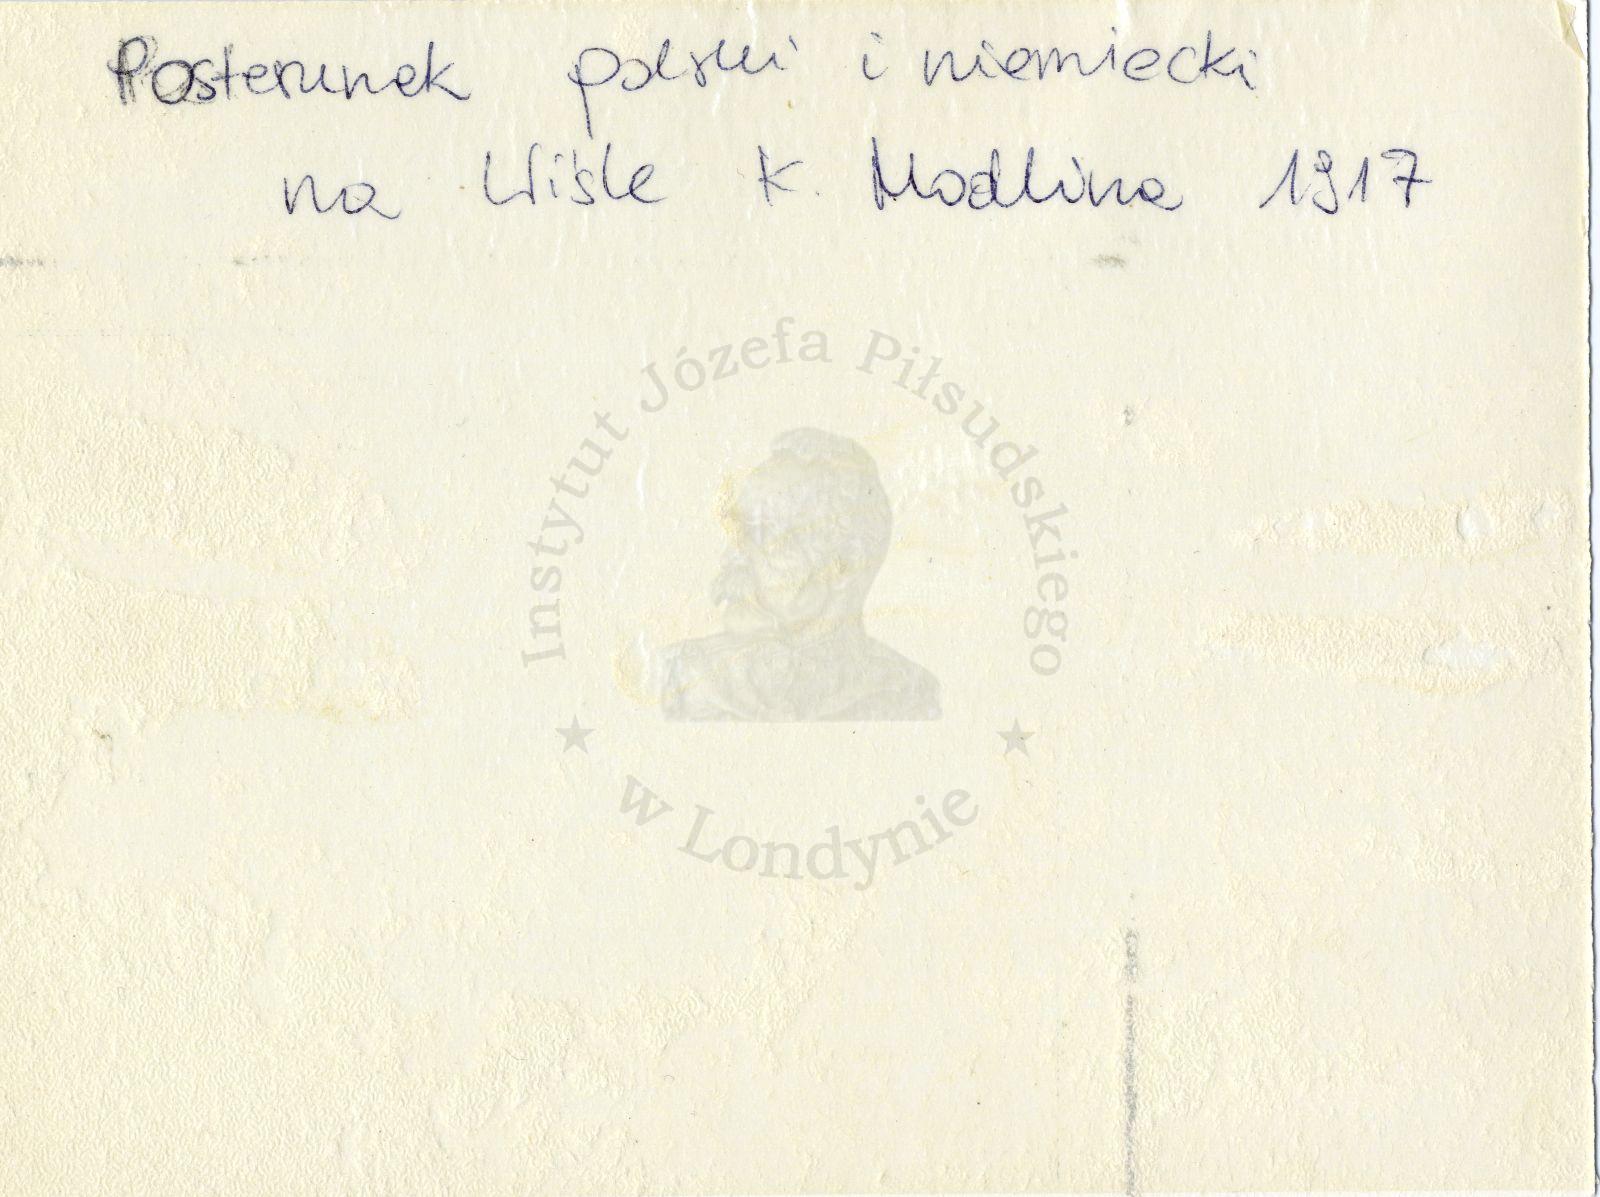 Posterunek polski i niemiecki
na Wiśle k. Modlina 1917
Instytut Józefa Piłsudskiego
w Londynie